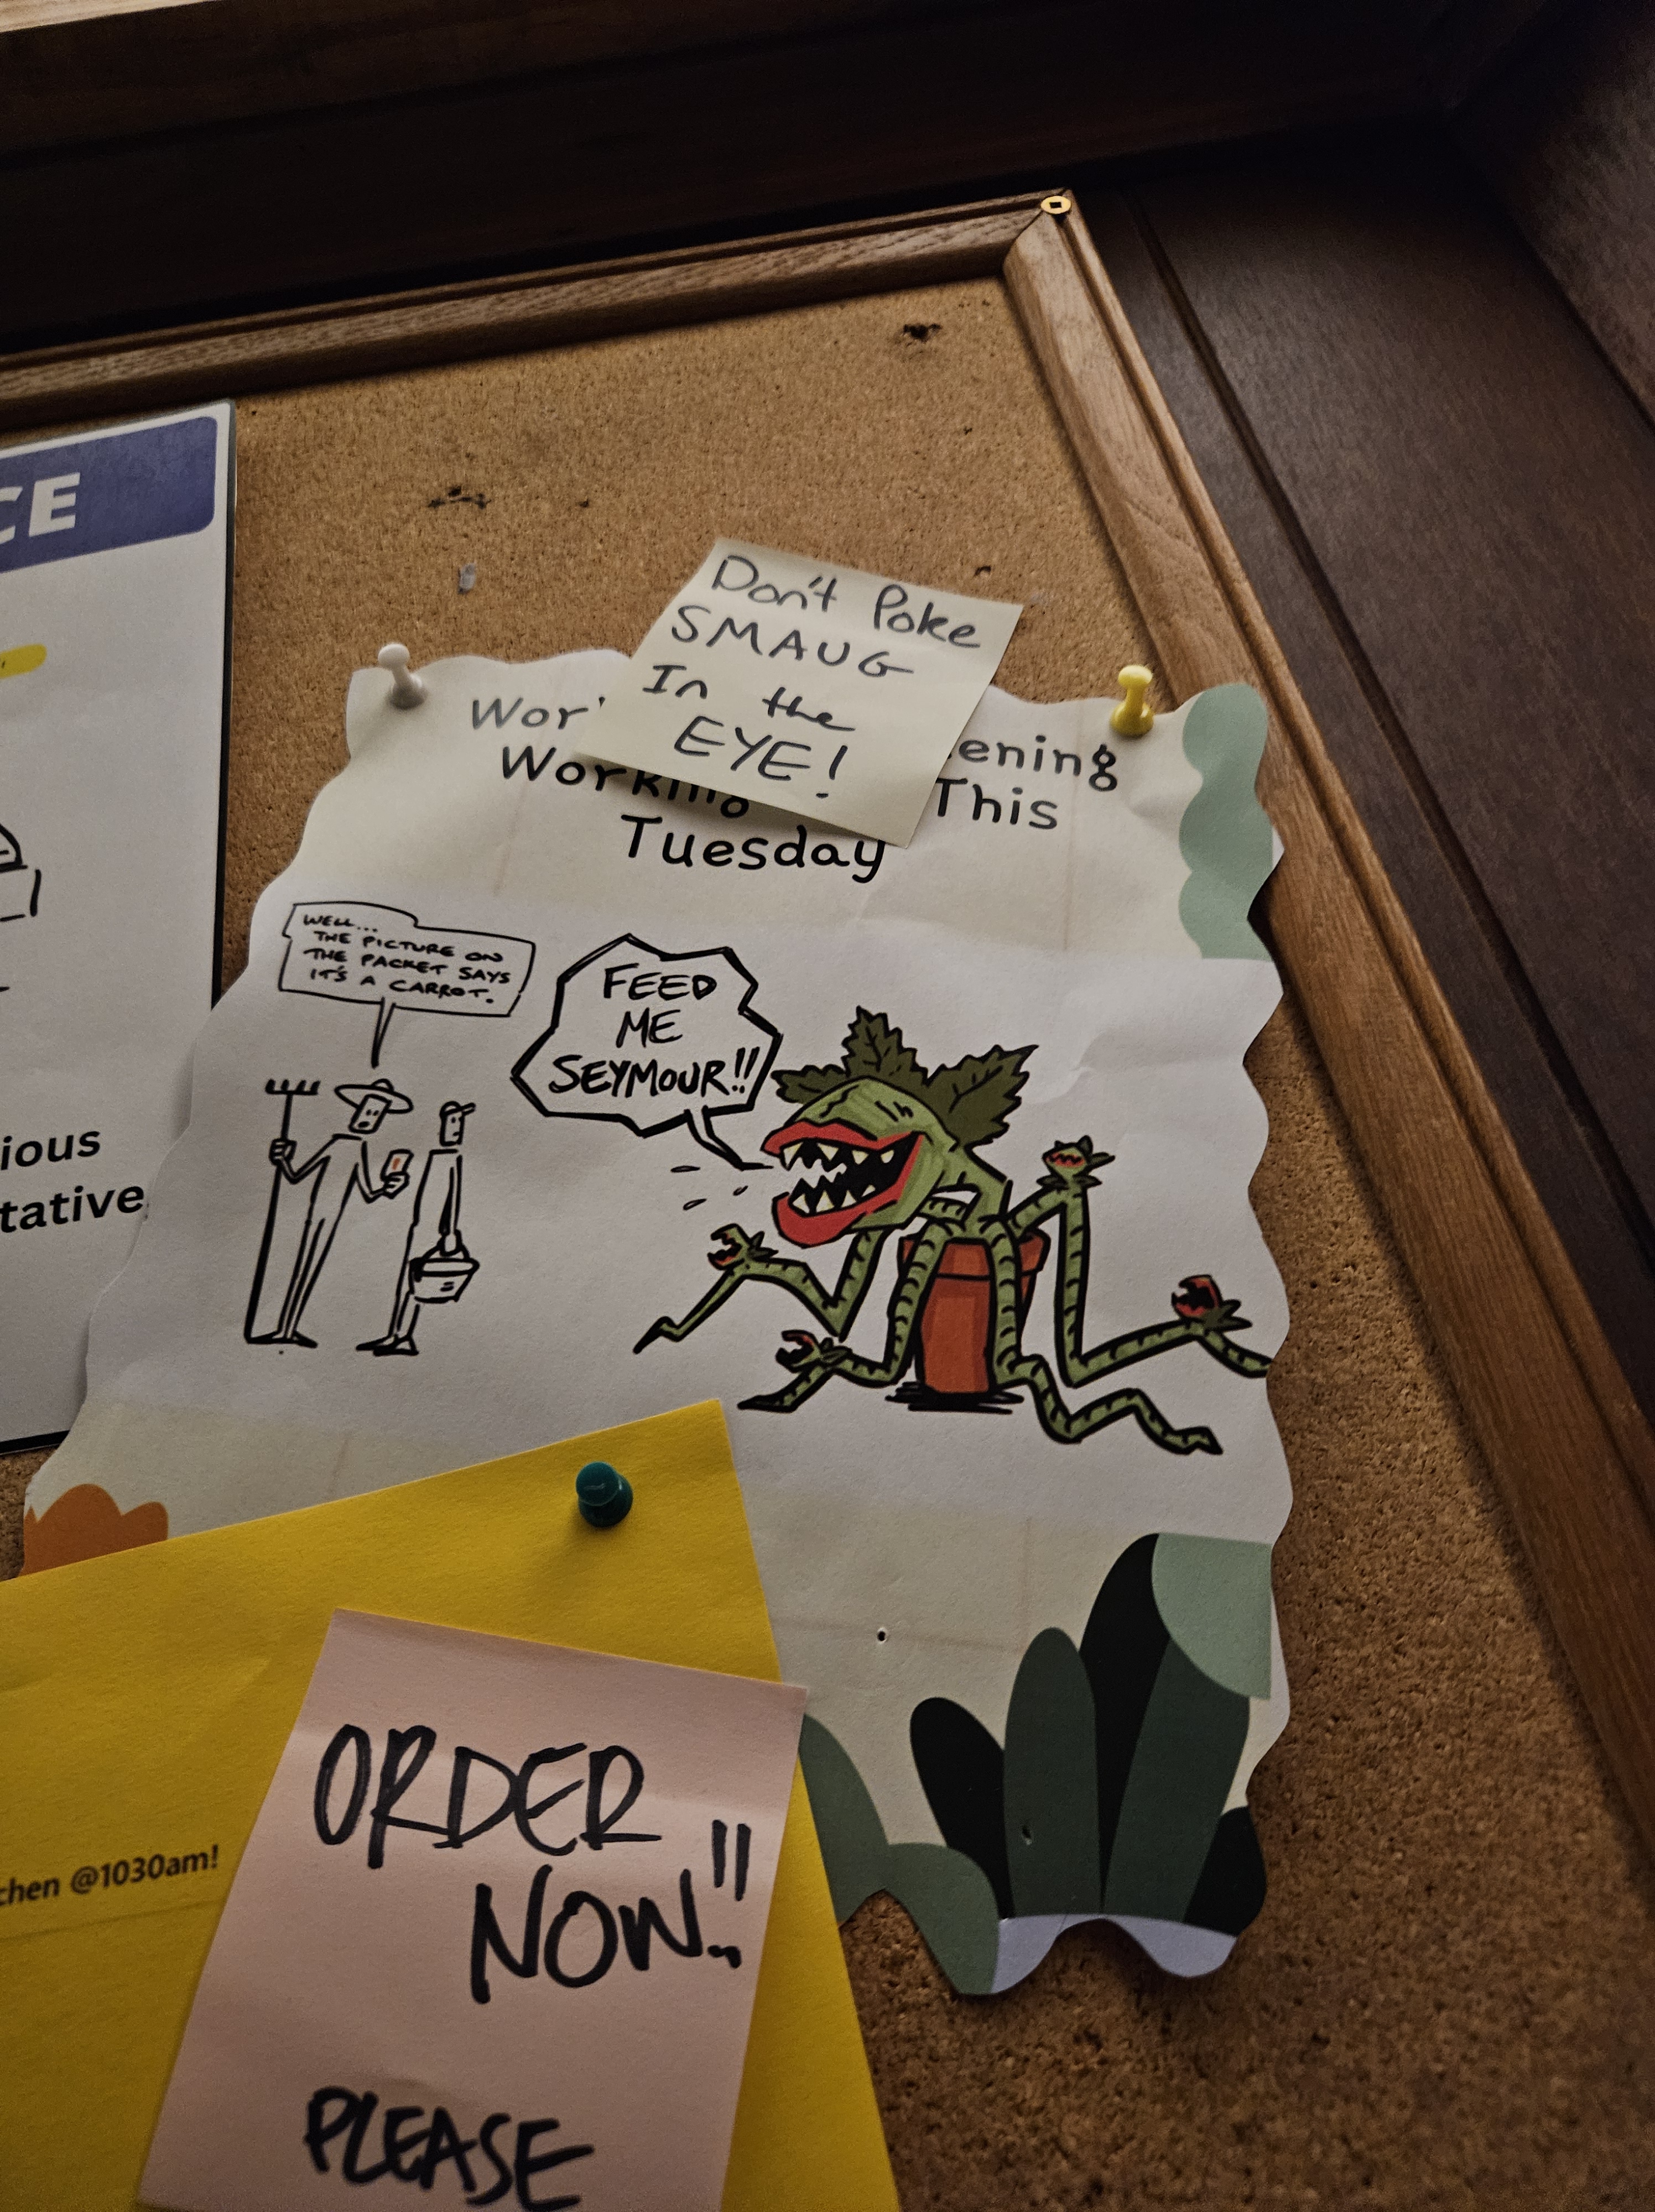 CE
Don't Poke
SMAUG
In the
EYE!
ening
This
Tuesday
WELL...
THE PICTURE ON
THE PACKET SAYS
IT'S A CARROT.
FEED
ME
SEYMOUR!!
ious
tative
chen @1030am!
ORDER
NOW!!
PLEASE